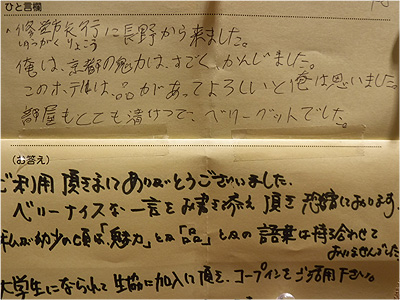 ひと言欄
修学旅行に長野から来ました。
しゅうがくりょこう
俺は、京都の魅力は、すごく、かんじました。
このホテルは、品があってよろしいと俺は思いました。
部屋もとても清けつで、ベリーグットでした。
(お答え)
ご利用頂きましてありがとうございました。
ベリーナイスな一言をお書き添え頂き恐縮であります。
私が幼少の頃は「魅力」とか「品」とかの語彙は持ち合わせて
おりませんでした
大学生になられて生協に加入して頂き、コープインをご活用下さい。